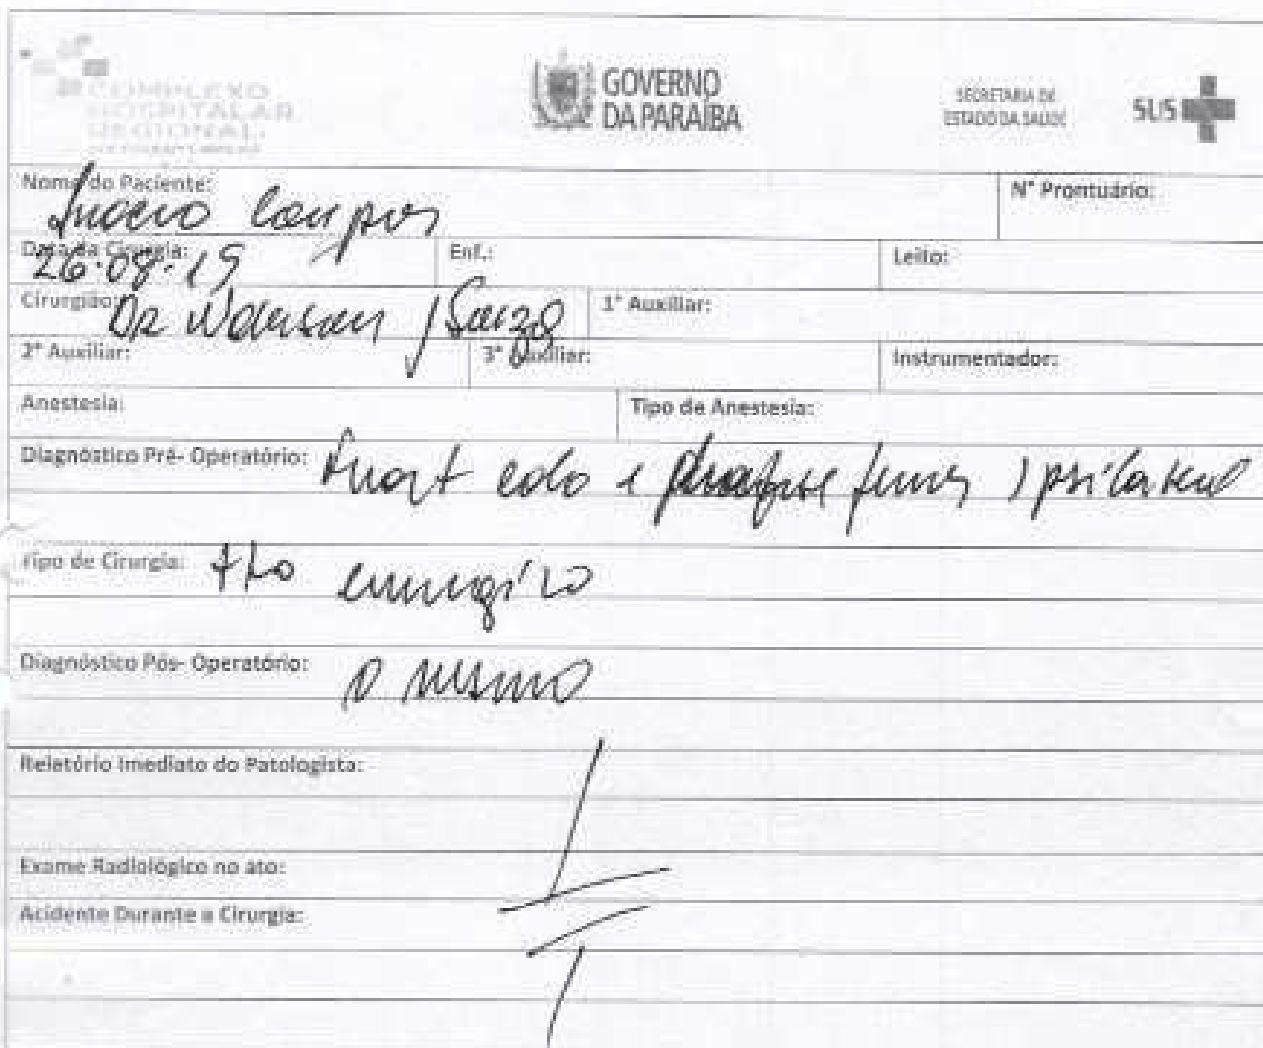 COMPLEXO
HOSPITALAR
REGIONAL
GOVERNO
DA PARAÍBA
SECRETARIA DE
ESTADO DA SAÚDE
SUS
Nome do Paciente:
Campos
Nº Prontuário:
Data da Cirurgia: 26.08.19
Enf.:
Leito:
Cirurgião: Dr
1º Auxiliar:
2º Auxiliar:
3º Auxiliar:
Instrumentador:
Anestesia:
Tipo de Anestesia:
Diagnóstico Pré- Operatório: colo e femur ipsilateral
Tipo de Cirurgia: tto cirurgico
Diagnóstico Pós- Operatório: o mesmo
Relatório Imediato do Patologista:
Exame Radiológico no ato:
Acidente Durante a Cirurgia: